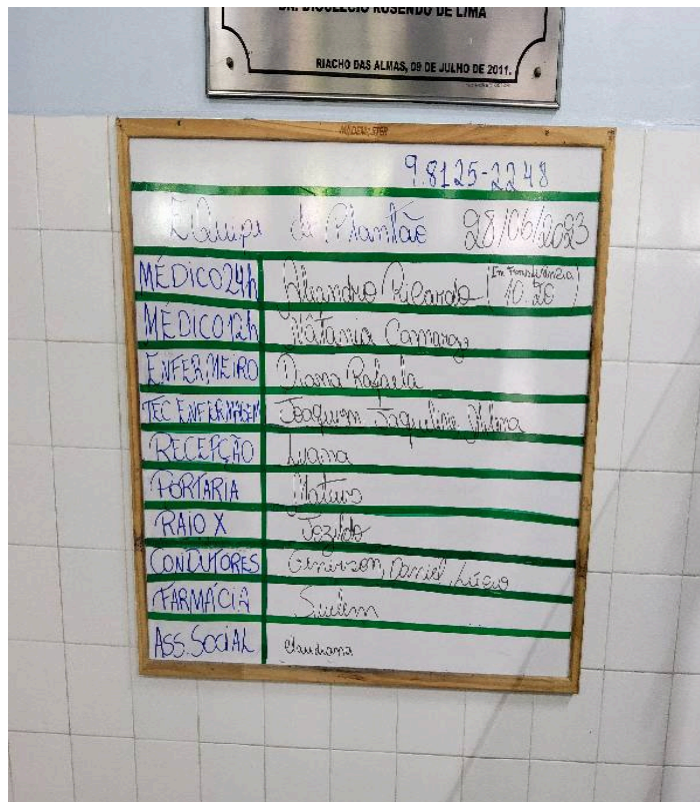 DR. DIOCLECIO ROSENDO DE LIMA
RIACHO DAS ALMAS, 09 DE JULHO DE 2011.
MADEMASTER
9.8125-2248
Equipe de Plantão 28/06/2023
MÉDICO 24h Aleandro Ricardo (Em Transferência 10:20)
MÉDICO 12h Nátania Camargo
ENFERMEIRO Diana Rafaela
TEC ENFERMAGEM Joaquim Jaqueline
RECEPÇÃO Luana
PORTARIA Mateus
RAIO X Jozildo
CONDUTORES Generson, Daniel, Lúcio
FARMÁCIA Suélem
ASS. SOCIAL Claudiana